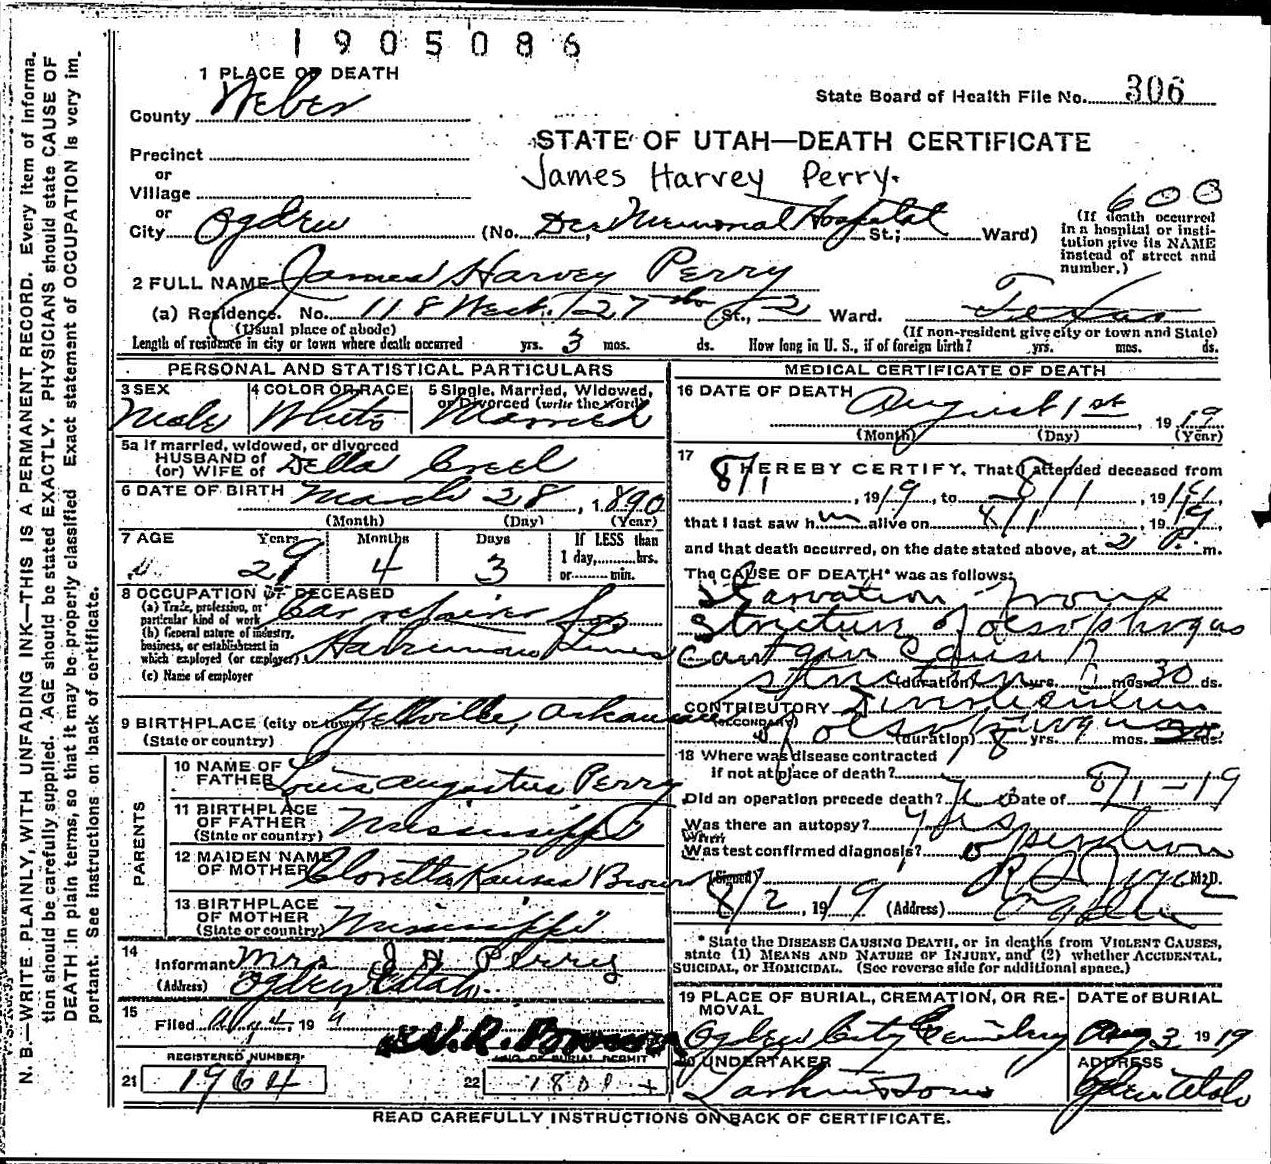 1905086
1 PLACE OF DEATH
County Weber
State Board of Health File No. 306
STATE OF UTAH—DEATH CERTIFICATE
Precinct
or
James Harvey Perry.
Village
or
City Ogden (No. Dee Memorial Hospital St.; Ward)
600
(If death occurred in a hospital or institution give its NAME instead of street and number.)
2 FULL NAME James Harvey Perry
(a) Residence. No. 118 West 27th St., 2 Ward. Texas
(Usual place of abode) (If non-resident give city or town and State)
Length of residence in city or town where death occurred yrs. 3 mos. ds. How long in U. S., if of foreign birth? yrs. mos. ds.
PERSONAL AND STATISTICAL PARTICULARS
3 SEX Male
4 COLOR OR RACE White
5 Single, Married, Widowed, or Divorced (write the word) Married
5a If married, widowed, or divorced
HUSBAND of
(or) WIFE of Della Creel
6 DATE OF BIRTH March 28, 1890
(Month) (Day) (Year)
7 AGE Years 29 Months 4 Days 3 If LESS than
1 day,.......hrs.
or.......min.
8 OCCUPATION OF DECEASED
(a) Trade, profession, or
particular kind of work Car repairer for
(b) General nature of industry,
business, or establishment in
which employed (or employer) Harriman Lines
(c) Name of employer
9 BIRTHPLACE (city or town) Yellville, Arkansas
(State or country)
PARENTS
10 NAME OF
FATHER Louis Augustus Perry
11 BIRTHPLACE
OF FATHER
(State or country) Mississippi
12 MAIDEN NAME
OF MOTHER Cloretta Brown
13 BIRTHPLACE
OF MOTHER
(State or country) Mississippi
14 Informant Mrs J H Perry
(Address) Ogden Utah.
15 Filed 4, 19
W.R. Brown
REGISTERED NUMBER NO. OF BURIAL PERMIT
21 1964 22 1800
MEDICAL CERTIFICATE OF DEATH
16 DATE OF DEATH August 1st 1919
(Month) (Day) (Year)
17 I HEREBY CERTIFY, That I attended deceased from
8/1, 1919, to 8/1, 1919,
that I last saw him alive on 8/1, 1919,
and that death occurred, on the date stated above, at 2 P. m.
The CAUSE OF DEATH* was as follows:
Starvation from
Stricture of oesophagus
Cant give Cause of
stricture (duration) yrs. mos. 30 ds.
CONTRIBUTORY Diverticulum
(SECONDARY) of oesophagus (duration) 8 yrs. mos. ds.
18 Where was disease contracted
if not at place of death?
Did an operation precede death? Yes Date of 8/1-19
Was there an autopsy? Yes
What test confirmed diagnosis? operation
(Signed) M.D.
8/2, 1919 (Address) Ogden
* State the DISEASE CAUSING DEATH, or in deaths from VIOLENT CAUSES,
state (1) MEANS AND NATURE OF INJURY, and (2) whether ACCIDENTAL,
SUICIDAL, or HOMICIDAL. (See reverse side for additional space.)
19 PLACE OF BURIAL, CREMATION, OR REMOVAL DATE of BURIAL
Ogden City Cemetery Aug 3 1919
20 UNDERTAKER ADDRESS
Larkin & Sons Ogden Utah
READ CAREFULLY INSTRUCTIONS ON BACK OF CERTIFICATE.
N. B.—WRITE PLAINLY, WITH UNFADING INK—THIS IS A PERMANENT RECORD. Every item of informa-
tion should be carefully supplied. AGE should be stated EXACTLY. PHYSICIANS should state CAUSE OF
DEATH in plain terms, so that it may be properly classified Exact statement of OCCUPATION is very im-
portant. See instructions on back of certificate.